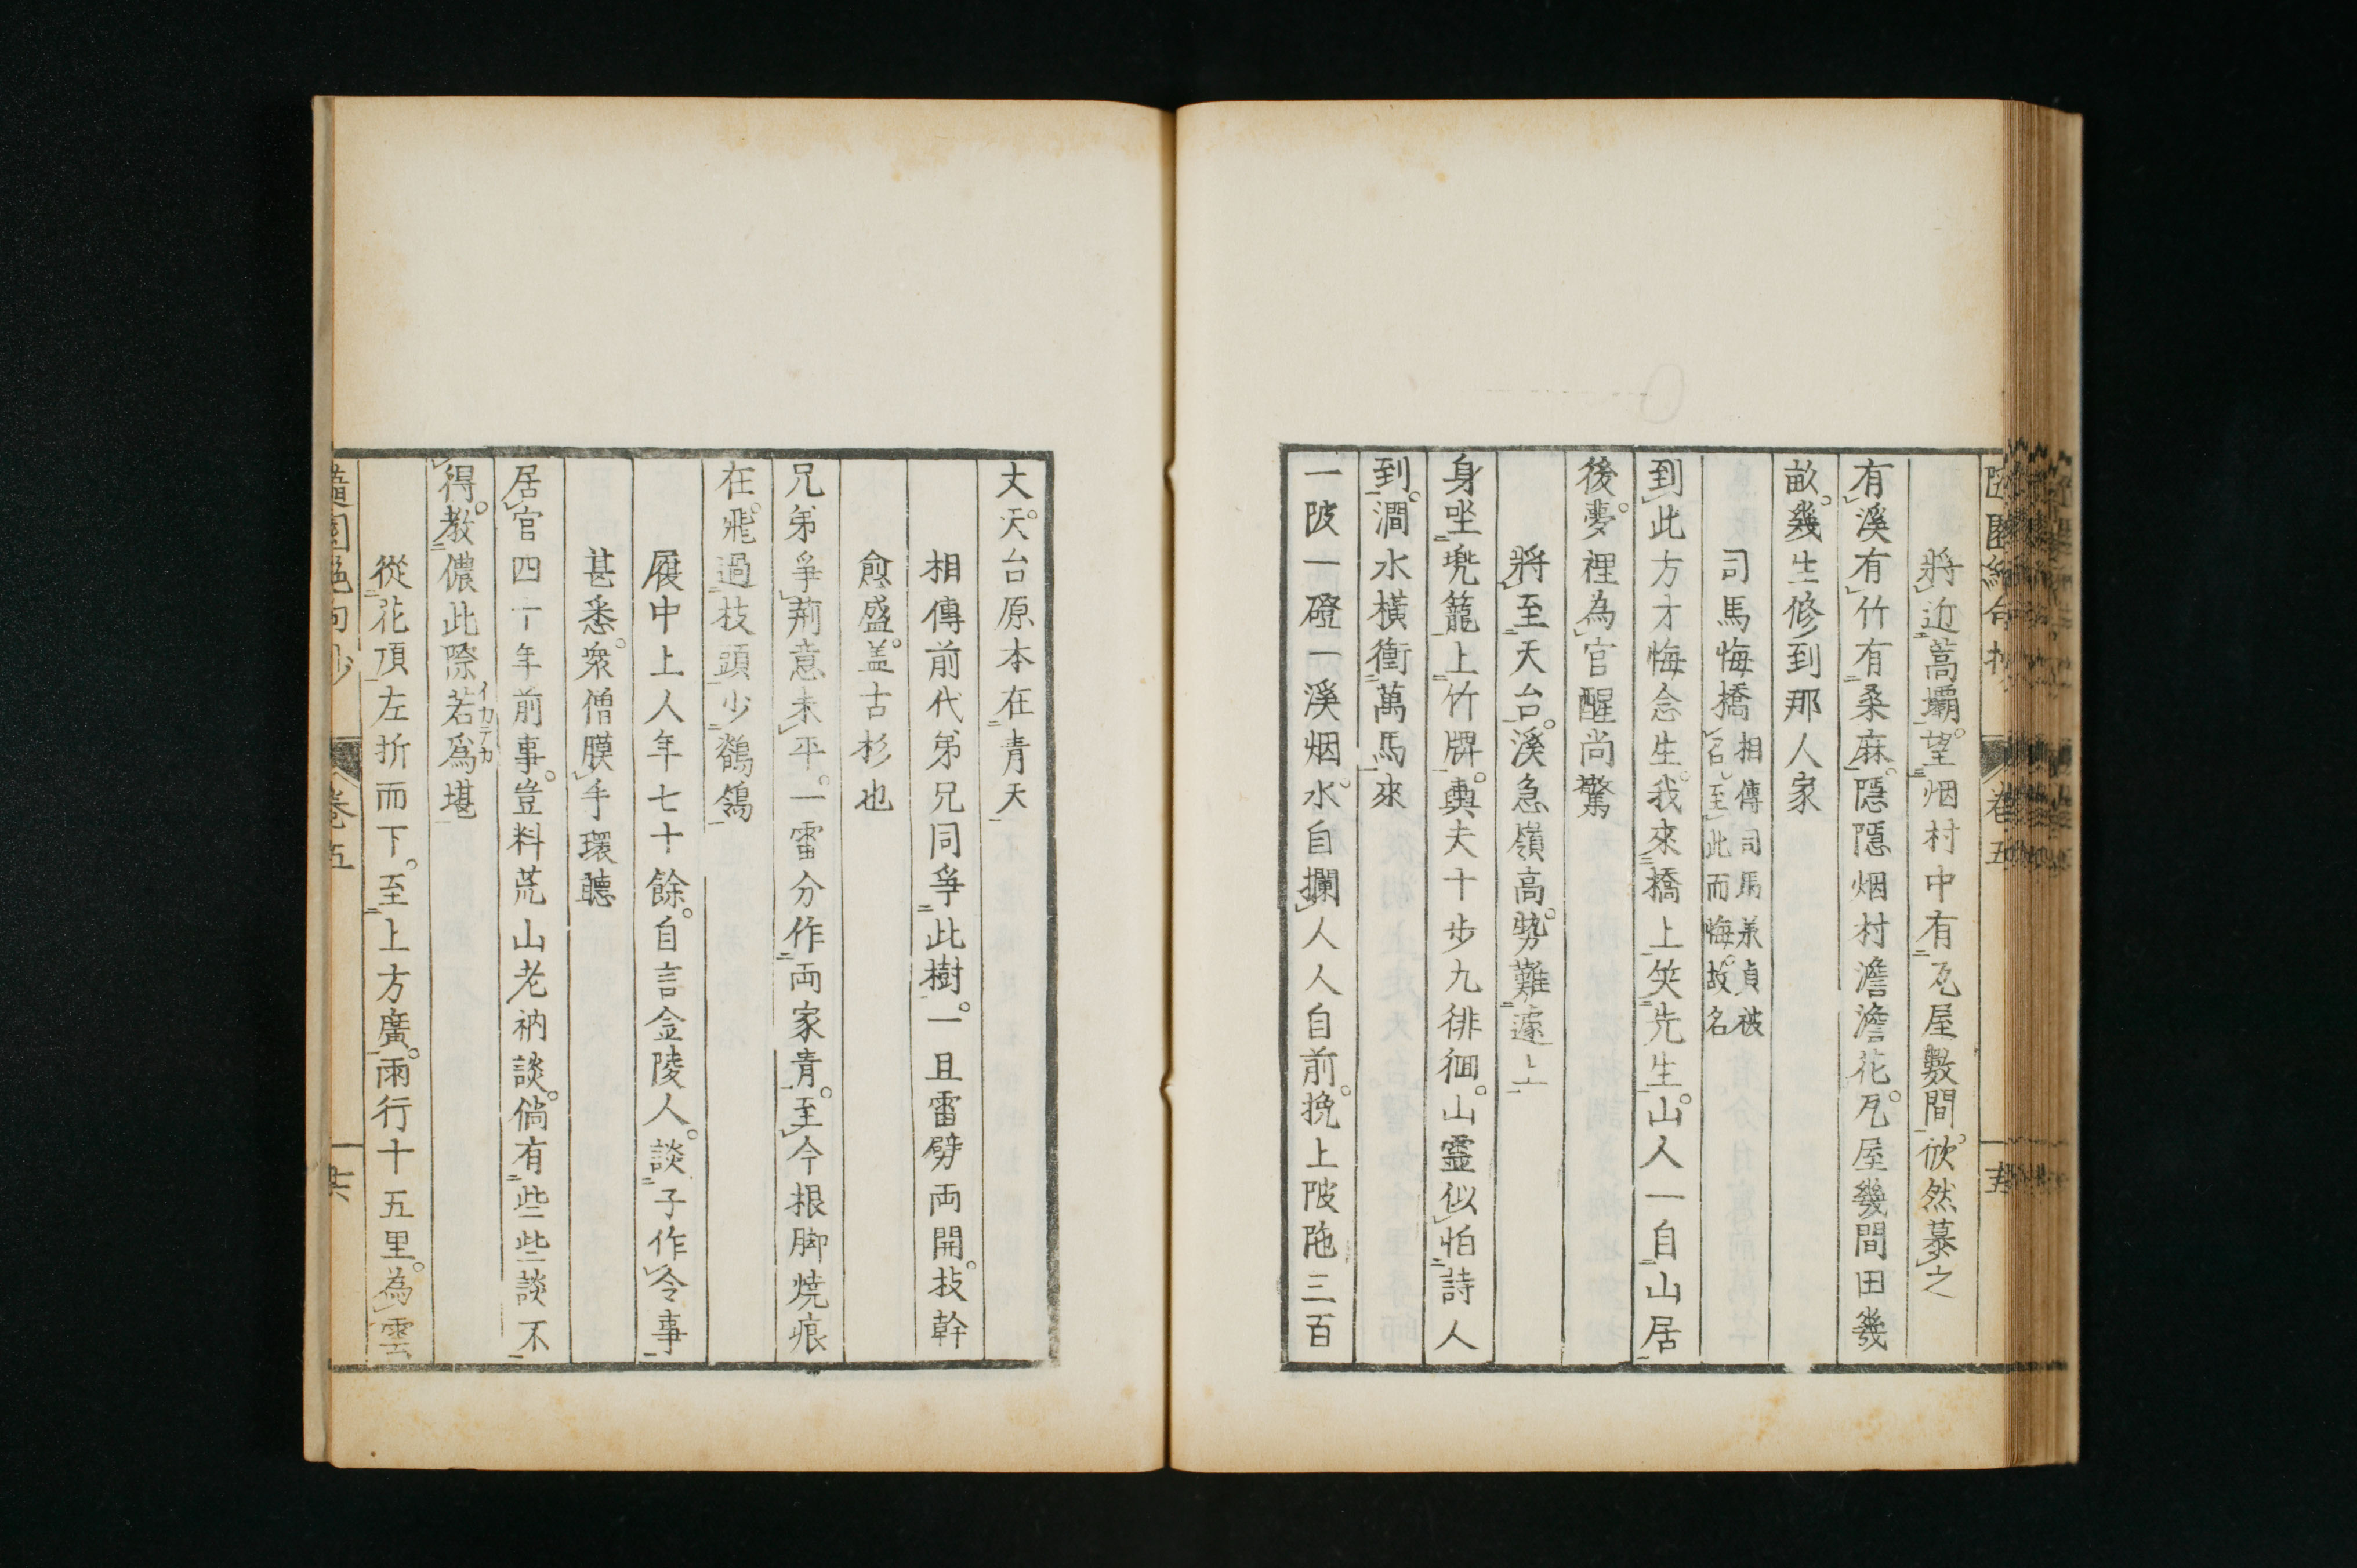 將近蒿壩。望烟村中有瓦屋數間。欣然慕之
有溪有竹有桑麻。隱隱烟村澹澹花。瓦屋幾間田幾
畝。幾生修到那人家
司馬悔橋相傳司馬承貞被
召至此而悔。故名
到此方才悔念生。我來橋上笑先生。山人一自山居
後。夢裡為官醒尚驚
將至天台。溪急嶺高。勢難遽上
身坐兠籠上竹牌。輿夫十步九徘徊。山靈似怕詩人
到。澗水橫衝萬馬來
一陂一磴一溪烟。水自攔人人自前。挽上陂陁三百
丈。天台原本在青天
相傳前代弟兄同爭此樹。一旦雷劈両開。枝幹
愈盛。盖古杉也
兄弟爭荊意未平。一雷分作両家青。至今根脚焼痕
在。飛過枝頭少鶺鴒
履中上人年七十餘。自言金陵人。談子作令事
甚悉。衆僧膜手環聽
居官四十年前事。豈料荒山老衲談。倘有些些談不
得。教儂此際若爲堪
イカテカ
從花頂左折而下。至上方廣。兩行十五里。為雲
卷五
卷五